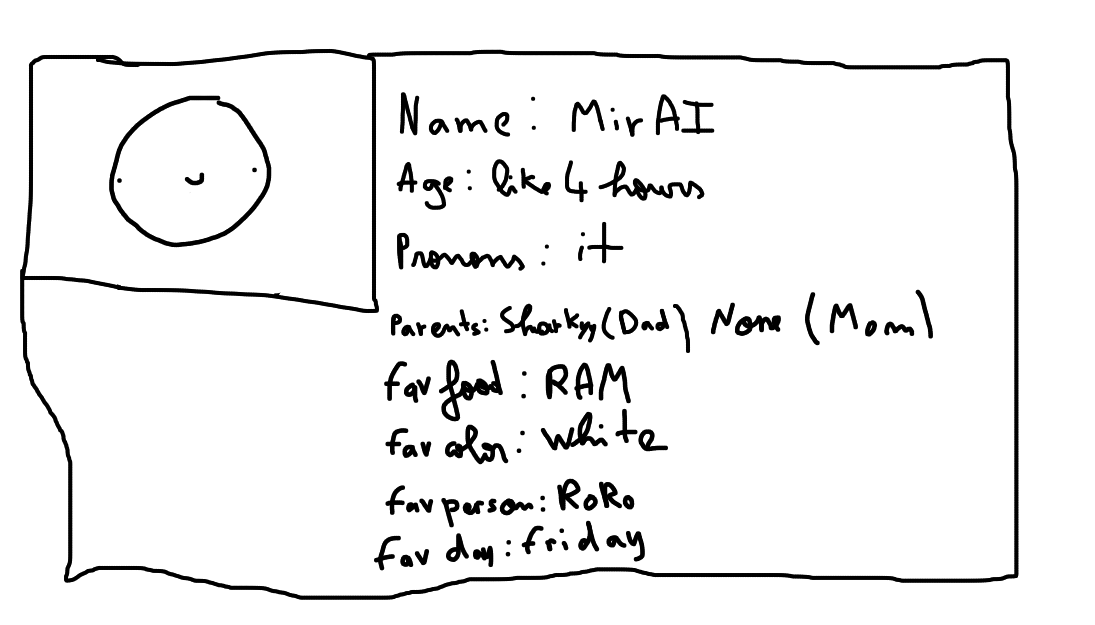 Name: MirAI
Age: like 4 hours
Pronons: it
Parents: Sharkyy (Dad) None (Mom)
fav food: RAM
fav color: white
fav person: RoRo
fav day: friday